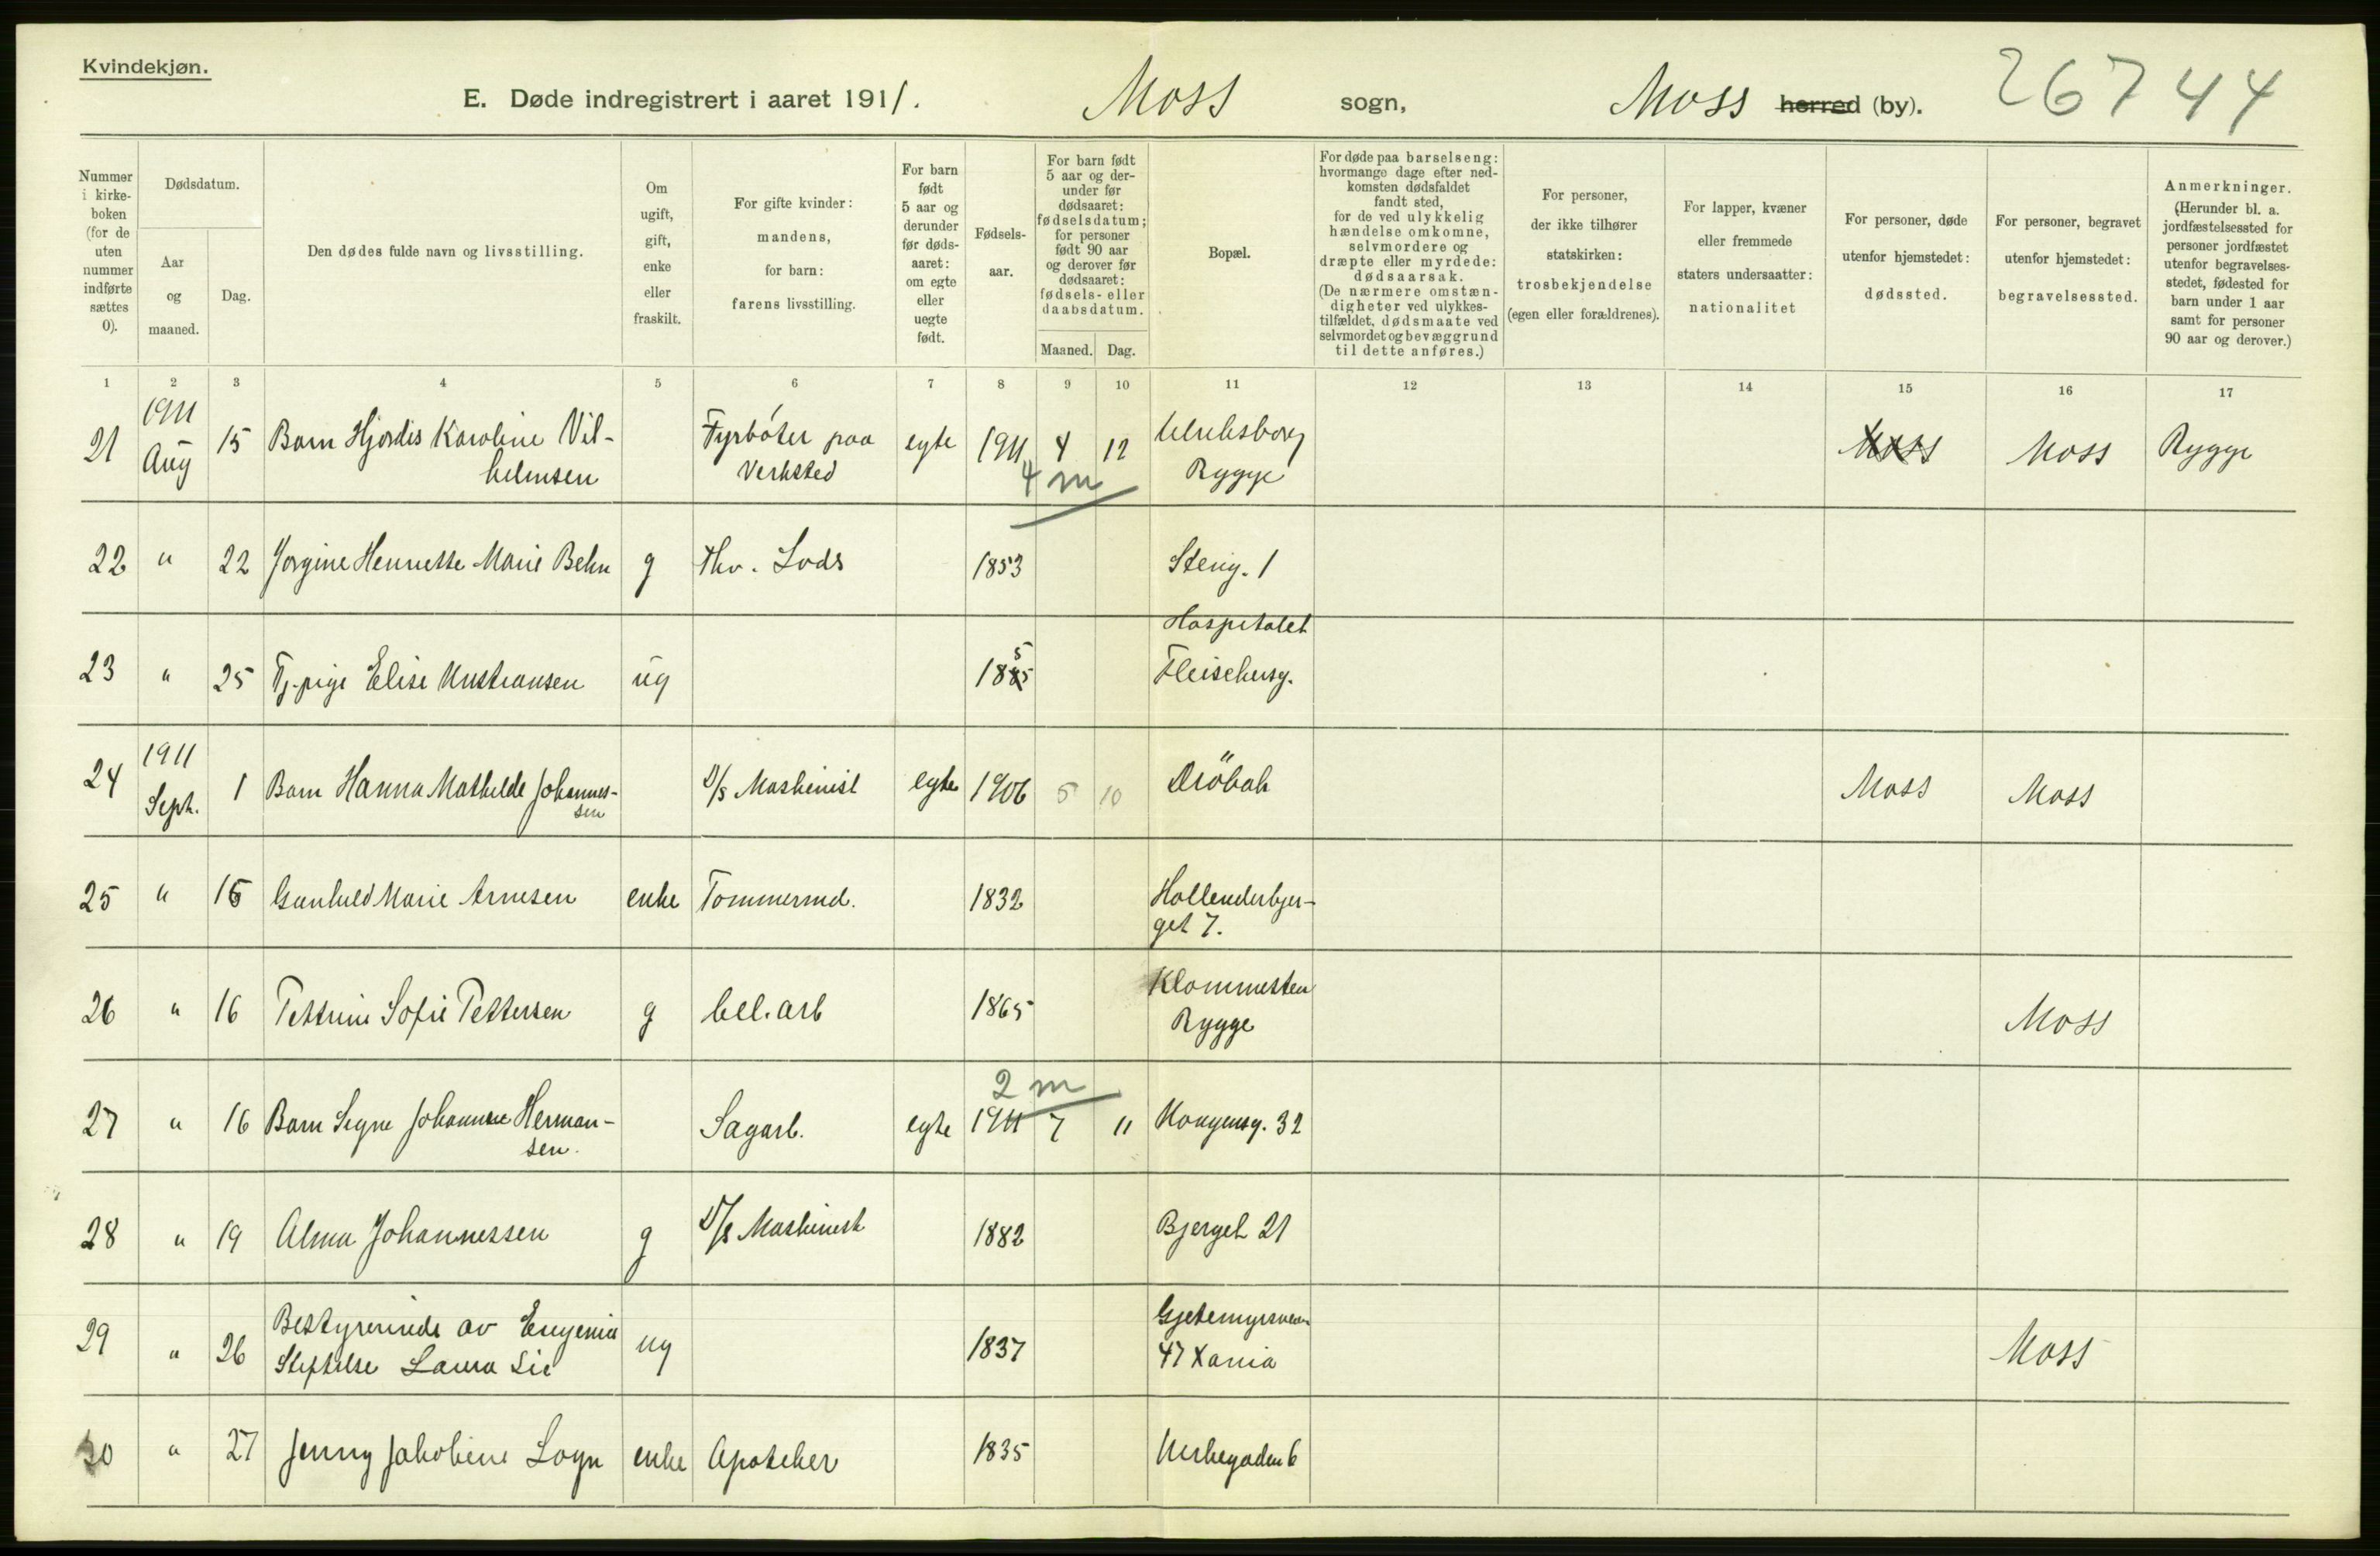 Kvindekjøn.
E. Døde indregistrert i aaret 1911. Moss sogn, Moss herred (by). 26744
Nummer i kirke-boken (for de uten nummer indførte sættes 0).
Dødsdatum.
Aar og maaned.
Dag.
Den dødes fulde navn og livsstilling.
Om ugift, gift, enke eller fraskilt.
For gifte kvinder: mandens, for barn: farens livsstilling.
For barn født 5 aar og derunder før døds-aaret: om egte eller uegte født.
Fødsels-aar.
For barn født 5 aar og der-under før dødsaaret: fødselsdatum; for personer født 90 aar og derover før dødsaaret: fødsels- eller daabsdatum.
Maaned. Dag.
Bopæl.
For døde paa barselseng: hvormange dage efter ned-komsten dødsfaldet fandt sted, for de ved ulykkelig hændelse omkomne, selvmordere og dræpte eller myrdede: dødsaarsak. (De nærmere omstæn-digheter ved ulykkes-tilfældet, dødsmaate ved selvmordet og bevæggrund til dette anføres.)
For personer, der ikke tilhører statskirken: trosbekjendelse (egen eller forældrenes).
For lapper, kvæner eller fremmede staters undersaatter: nationalitet
For personer, døde utenfor hjemstedet: dødssted.
For personer, begravet utenfor hjemstedet: begravelsessted.
Anmerkninger. (Herunder bl. a. jordfæstelsessted for personer jordfæstet utenfor begravelses-stedet, fødested for barn under 1 aar samt for personer 90 aar og derover.)
1 2 3 4 5 6 7 8 9 10 11 12 13 14 15 16 17
21 1911 Aug 15 Barn Hjordis Karoline Vil-helmsen Fyrbøter paa Verksted egte 1911 4 12 4 m Rygge Moss Moss Rygge
22 " 22 Jørgine Henriette Marie Behn g Thv. Lods 1853 Steng. 1
23 " 25 Tj.pige Elise Kristiansen ug 1885 5 Hospitalet Fleischersg.
24 1911 Sept. 1 Barn Hanna Mathilde Johannes-sen D/s Maskinist egte 1906 5 10 Drøbak Moss Moss
25 " 15 Gunhild Marie Arnesen enke Tømmermd. 1832 Hollenderbjer-get 7.
26 " 16 Pettrine Sofie Pettersen g cel. arb 1865 Klommesten Rygge Moss
27 " 16 Barn Signe Johanne Herman-sen. Sagarb. egte 1911 7 11 2 m Kongensg. 32
28 " 19 Alma Johannessen g D/s Maskinist 1882 Bjerget 21
29 " 26 Bestyrerinde av Eugenia Stiftelse Laura Lie ug 1837 Gjetemyrsveien 47 Xania Moss
30 " 27 Jenny Jakobine Logn enke Apoteker 1835 Kirkegaden 6